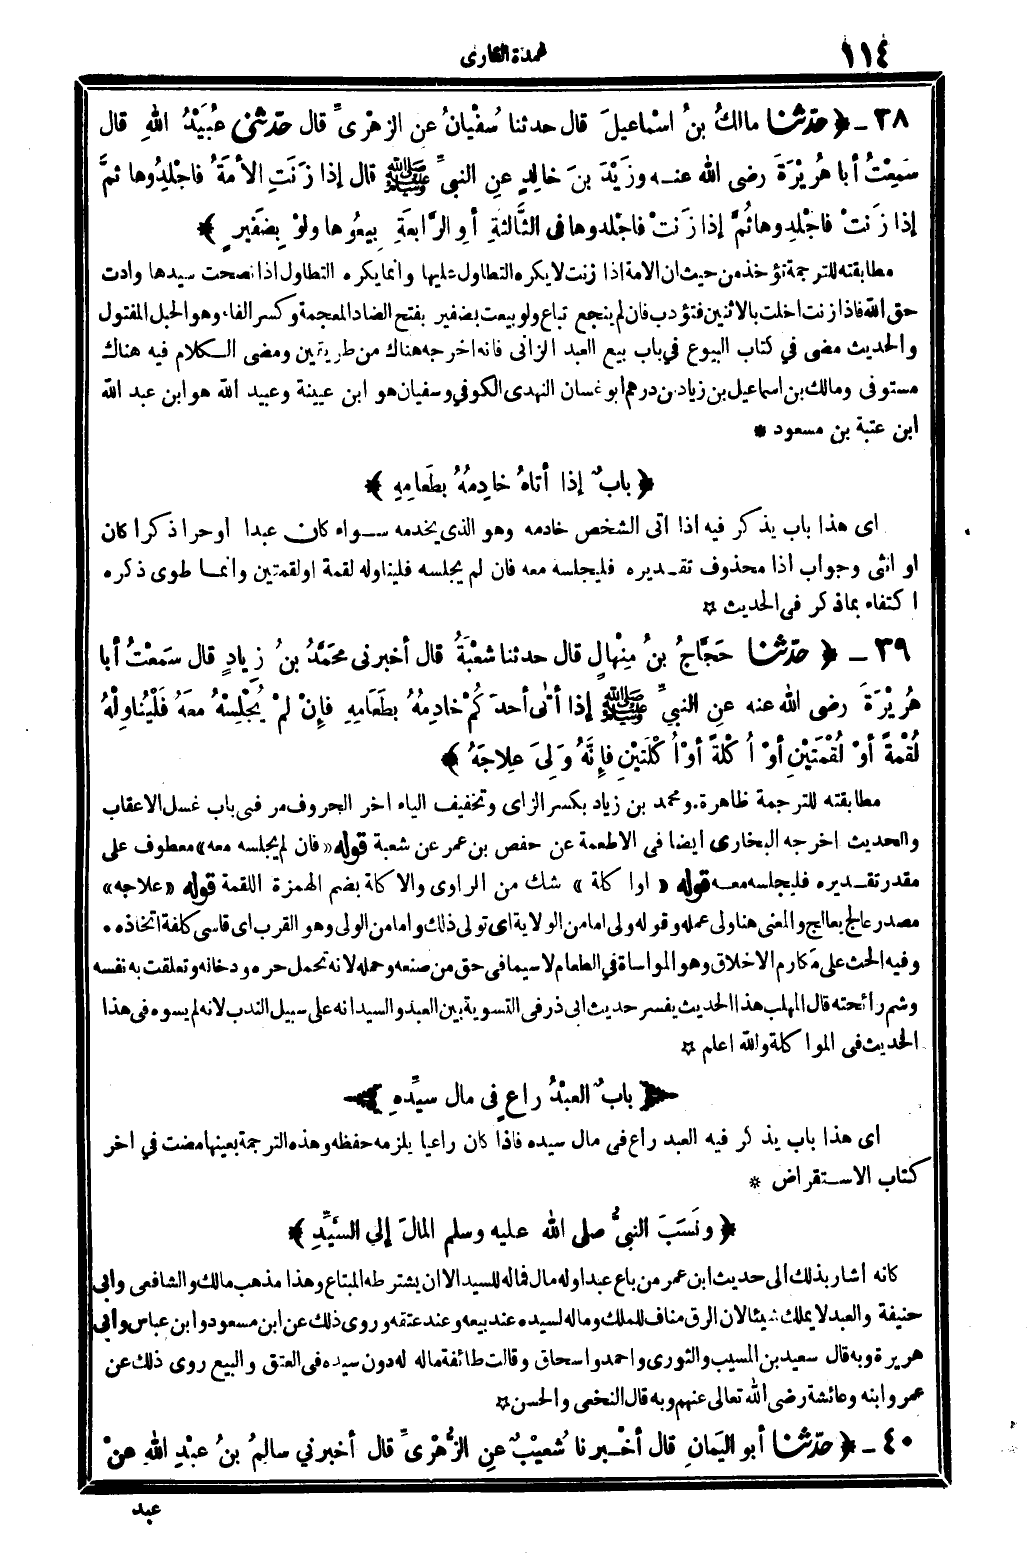 ١١٤
عمدة القارى
٣٨ ـ ﴿ حَدَّثَنَا مالكُ بنُ اسْماعيلَ قال حدثنا سُفْيانُ عنِ الزهْرِىِّ قال حَدَّثَنِى عُبَيْدُ اللهِ قال
سَمِعْتُ أبا هُرَيْرَةَ رضى الله عنه وزَيْدَ بنَ خالِدٍ عنِ النبىِّ ﷺ قال إذا زَنَتِ الأمَةُ فاجْلِدُوها ثمَّ
إذا زَنَتْ فاجْلِدوها ثُمَّ إذا زَنَتْ فاجْلدوها فى الثَّالثةِ أوِ الرَّابعةِ بِيعُوها ولوْ بِضَفيرٍ ﴾
مطابقته للترجمة تؤخذ من حيث ان الامة اذا زنت لا يكره التطاول عليها وانما يكره التطاول اذا نصحت سيدها وادت
حق الله فاذا زنت اخلت بالاثنين فتؤدب فان لم ينجع تباع ولو بيعت بضفير بفتح الضاد المعجمة وكسر الفاء وهو الحبل المفتول
والحديث مضى في كتاب البيوع في باب بيع العبد الزانى فانه اخرجه هناك من طريقين ومضى الكلام فيه هناك
مستوفى ومالك بن اسماعيل بن زياد بن درهم ابو غسان النهدى الكوفي وسفيان هو ابن عيينة وعبيد الله هو ابن عبد الله
ابن عتبة بن مسعود *
﴿ بابٌ إذا أتاهُ خادِمُهُ بطَعامِهِ ﴾
اى هذا باب يذكر فيه اذا اتى الشخص خادمه وهو الذى يخدمه سواء كان عبدا اوحرا ذكرا كان
او انثى وجواب اذا محذوف تقديره فليجلسه معه فان لم يجلسه فليناوله لقمة او لقمتين وانما طوى ذكره
اكتفاء بماذكر فى الحديث ☆
٣٩ ـ ﴿ حَدَّثَنَا حَجَّاجُ بنُ مِنْهالٍ قال حدثنا شعْبَةُ قال أخبرنى محَمَّدُ بنُ زِيادٍ قال سَمعْتُ أبا
هُرَيْرَةَ رضى الله عنه عنِ النبىِّ ﷺ إذا أتَى أحدَكُمْ خادِمُهُ بطَعَامِهِ فإِنْ لمْ يُجْلِسْهُ معَهُ فَلْيُناوِلْهُ
لُقْمةً أوْ لُقْمَتَيْنِ أوْ أُكْلَةً أوْ أُكْلَتَيْنِ فإِنَّهُ وَلِىَ عِلاجَهُ ﴾
مطابقته للترجمة ظاهرة. ومحمد بن زياد بكسر الزاى وتخفيف الياء اخر الحروف مر فى باب غسل الاعقاب
والحديث اخرجه البخارى ايضا فى الاطعمة عن حفص بن عمر عن شعبة قوله «فان لم يجلسه معه» معطوف على
مقدر تقديره فليجلسه معه قوله « او اكلة » شك من الراوى والاكلة بضم الهمزة اللقمة قوله «علاجه»
مصدر عالج يعالج والمعنى هنا ولى عمله وقوله ولى اما من الولاية اى تولى ذلك واما من الولى وهو القرب اى قاسى كلفة اتخاذه ٠
وفيه الحث على مكارم الاخلاق وهو المواساة في الطعام لا سيما فى حق من صنعه وحمله لانه تحمل حره ودخانه وتعلقت به نفسه
وشم رائحته قال المهلب هذا الحديث يفسر حديث ابى ذر فى التسوية بين العبد والسيد انه على سبيل الندب لانه لم يسوه فى هذا
الحديث فى المواكلة والله اعلم ☆
﴿ بابٌ العبْدُ راعٍ فى مالِ سيِّدِهِ ﴾
اى هذا باب يذكر فيه العبد راع فى مال سيده فاذا كان راعيا يلزمه حفظه وهذه الترجمة بعينها مضت في اخر
كتاب الاستقراض *
﴿ ونَسَبَ النبىُّ صلى الله عليه وسلم المالَ إلى السَّيِّدِ ﴾
كانه اشار بذلك الى حديث ابن عمر من باع عبدا وله مال فماله للسيد الا ان يشترطه المبتاع وهذا مذهب مالك والشافعى وابى
حنيفة والعبد لا يملك شيئا لان الرق مناف للملك وماله لسيده عند بيعه وعند عتقه وروى ذلك عن ابن مسعود وابن عباس وابى
هريرة وبه قال سعيد بن المسيب والثورى واحمد واسحاق وقالت طائفة ماله له دون سيده فى العتق والبيع روى ذلك عن
عمر وابنه وعائشة رضى الله تعالى عنهم وبه قال النخعى والحسن ☆
٤٠ ـ ﴿ حَدَّثَنَا أبو اليَمانِ قال أخْبرنا شُعيْبٌ عنِ الزُّهْرِىِّ قال أخبرني سالِمُ بنُ عبْدِ اللهِ عنْ
عبد